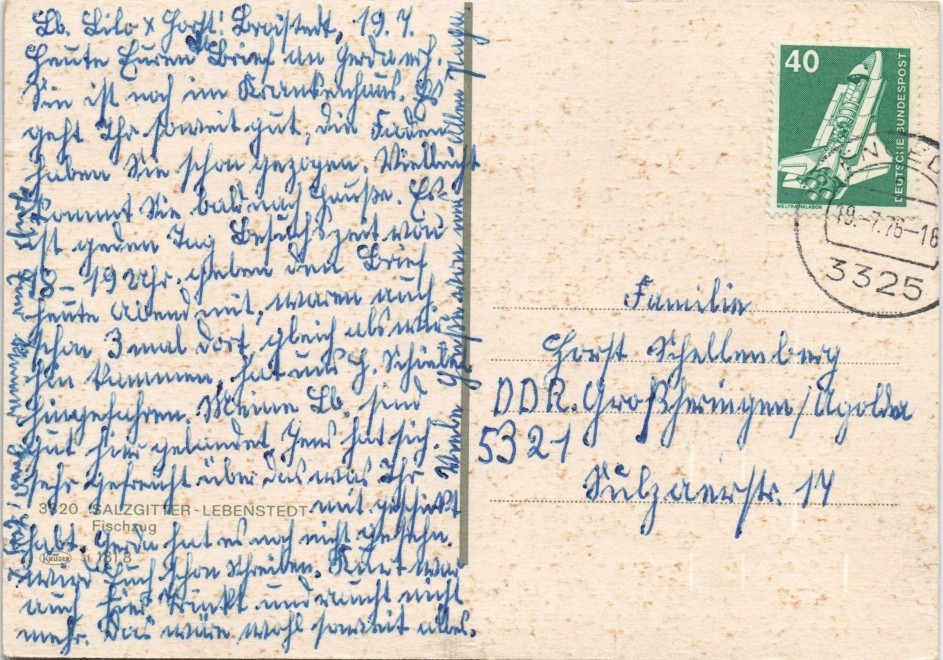 Lb. Lilo x Horst! Broistedt, 19.7.
Heute Euren Brief an Gerda erh.
Sie ist noch im Krankenhaus. Es
geht Ihr soweit gut, die Faden
haben Sie schon gezogen. Vielleicht
kommt Sie bald nach Hause. Es
ist jeden Tag Besuchszeit von
18 – 19 Uhr. geben den Brief
heute Abend mit, waren auch
schon 3 mal dort, gleich als wir
hin kammen, hat uns H.
hingefahren. Meine Lb. sind
gut hier gelandet, Jens hat sich
sehr gefreuht über das was Ihr
mit geschikt
habt. Gerda hat es noch nicht gesehn.
wird Euch schon schreiben. Kurt war
auch hier, trinkt und raucht nicht
mehr. Das wäre wohl soweit alles.
Viele Grüße von uns allen
3320 SALZGITTER-LEBENSTEDT
Fischzug
KRÜGER
181 8
40
DEUTSCHE BUNDESPOST
WELTRAUMLABOR
19.-7.76-16
3325
Familie
Horst Schellenberg
DDR. Großheringen/Apolda
5321
Sulzaerstr. 17